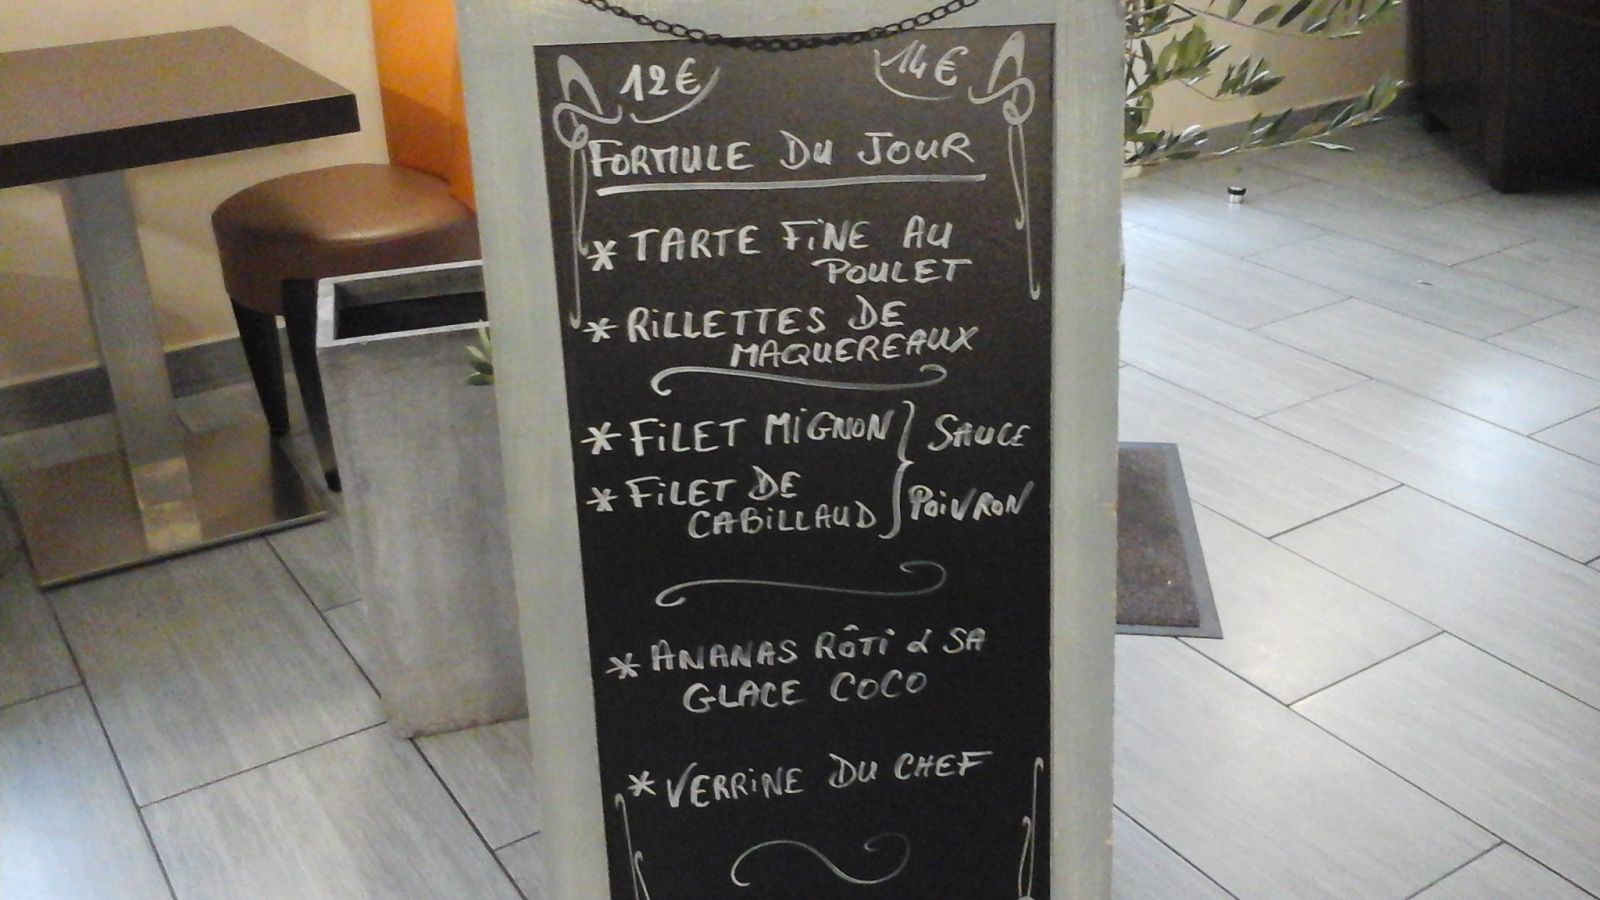 12€ 14€
FORMULE DU JOUR
* TARTE FINE AU
POULET
* RILLETTES DE
MAQUEREAUX
* FILET MIGNON } SAUCE
* FILET DE
CABILLAUD } POIVRON
* ANANAS RÔTI & SA
GLACE COCO
* VERRINE DU CHEF